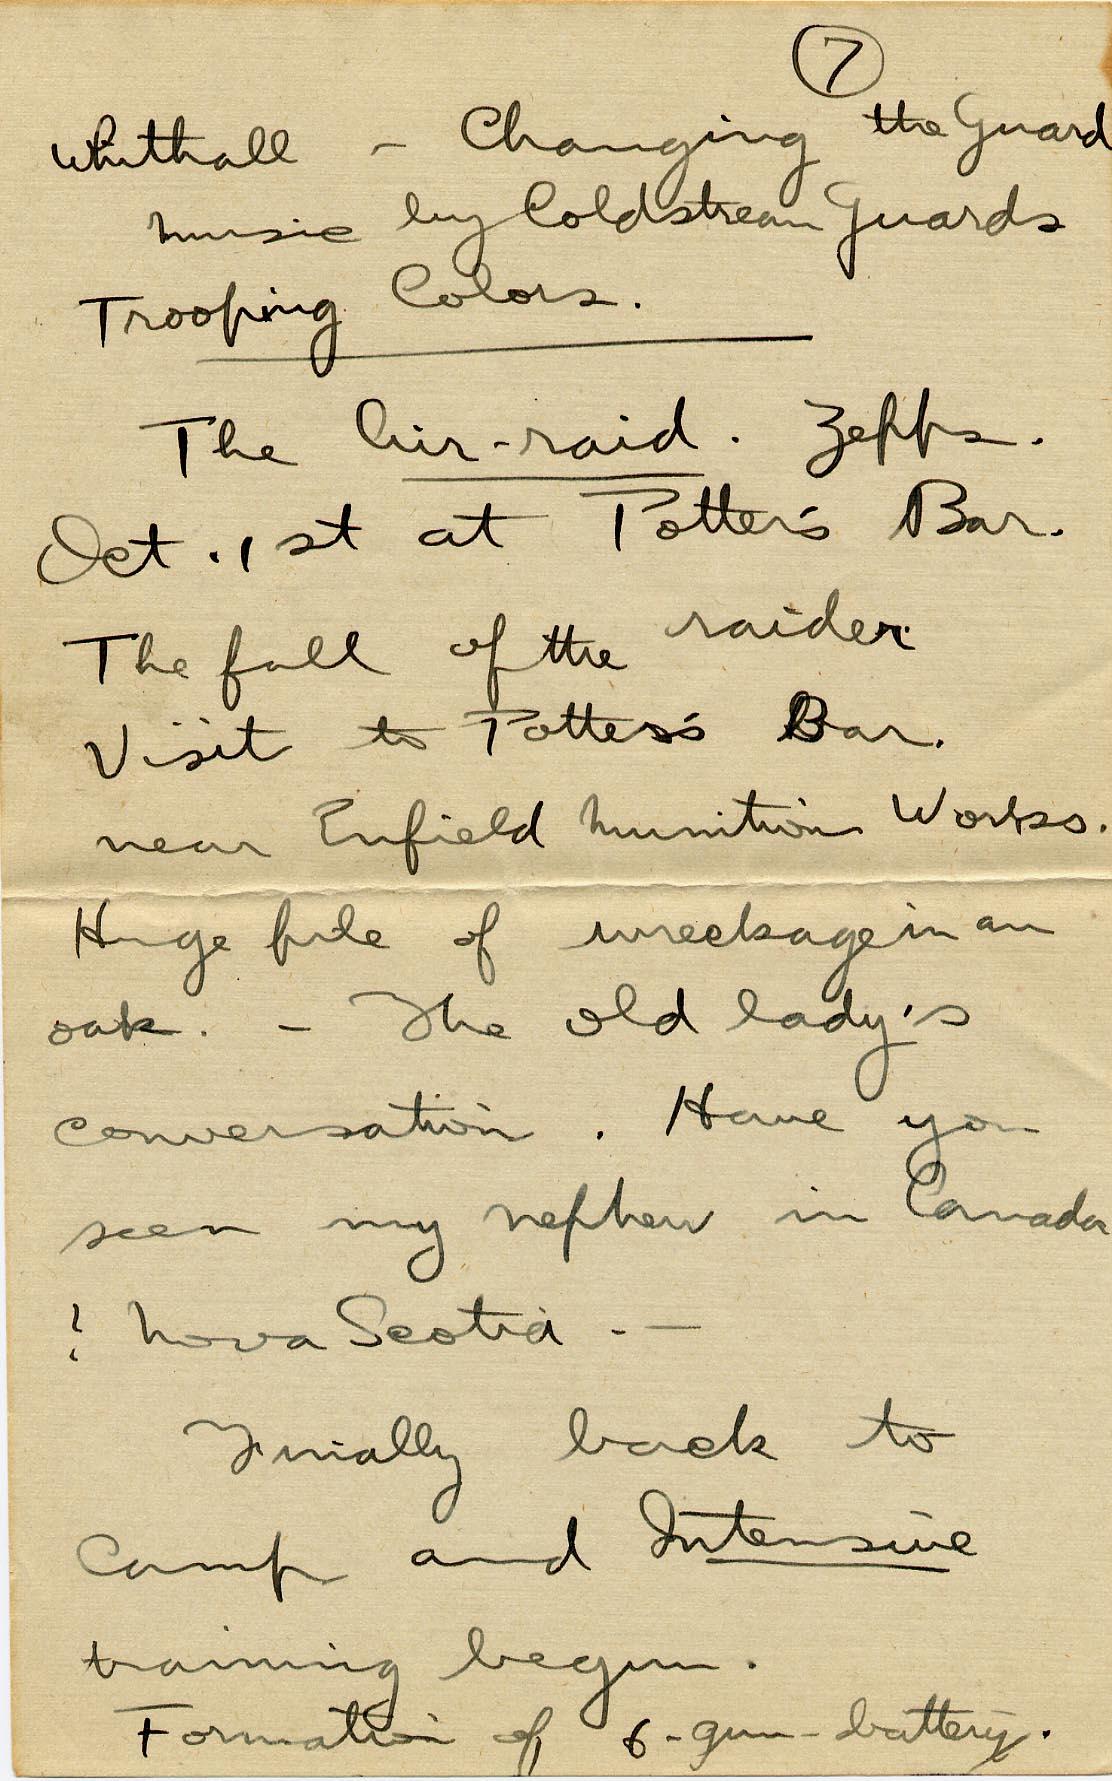 7
Whithall - Changing the Guard
music by Coldstream Guards
Trooping Colors.
The Air-raid. Zepps.
Oct. 1st at Potter's Bar.
The fall of the raider
Visit to Potter's Bar.
near Enfield Munition Works.
Huge pile of wreckage in an
oak. - The old lady's
conversation. Have you
seen my nephew in Canada
? Nova Scotia. -
Finally back to
camp and Intensive
training begun.
Formation of 6-gun-battery.